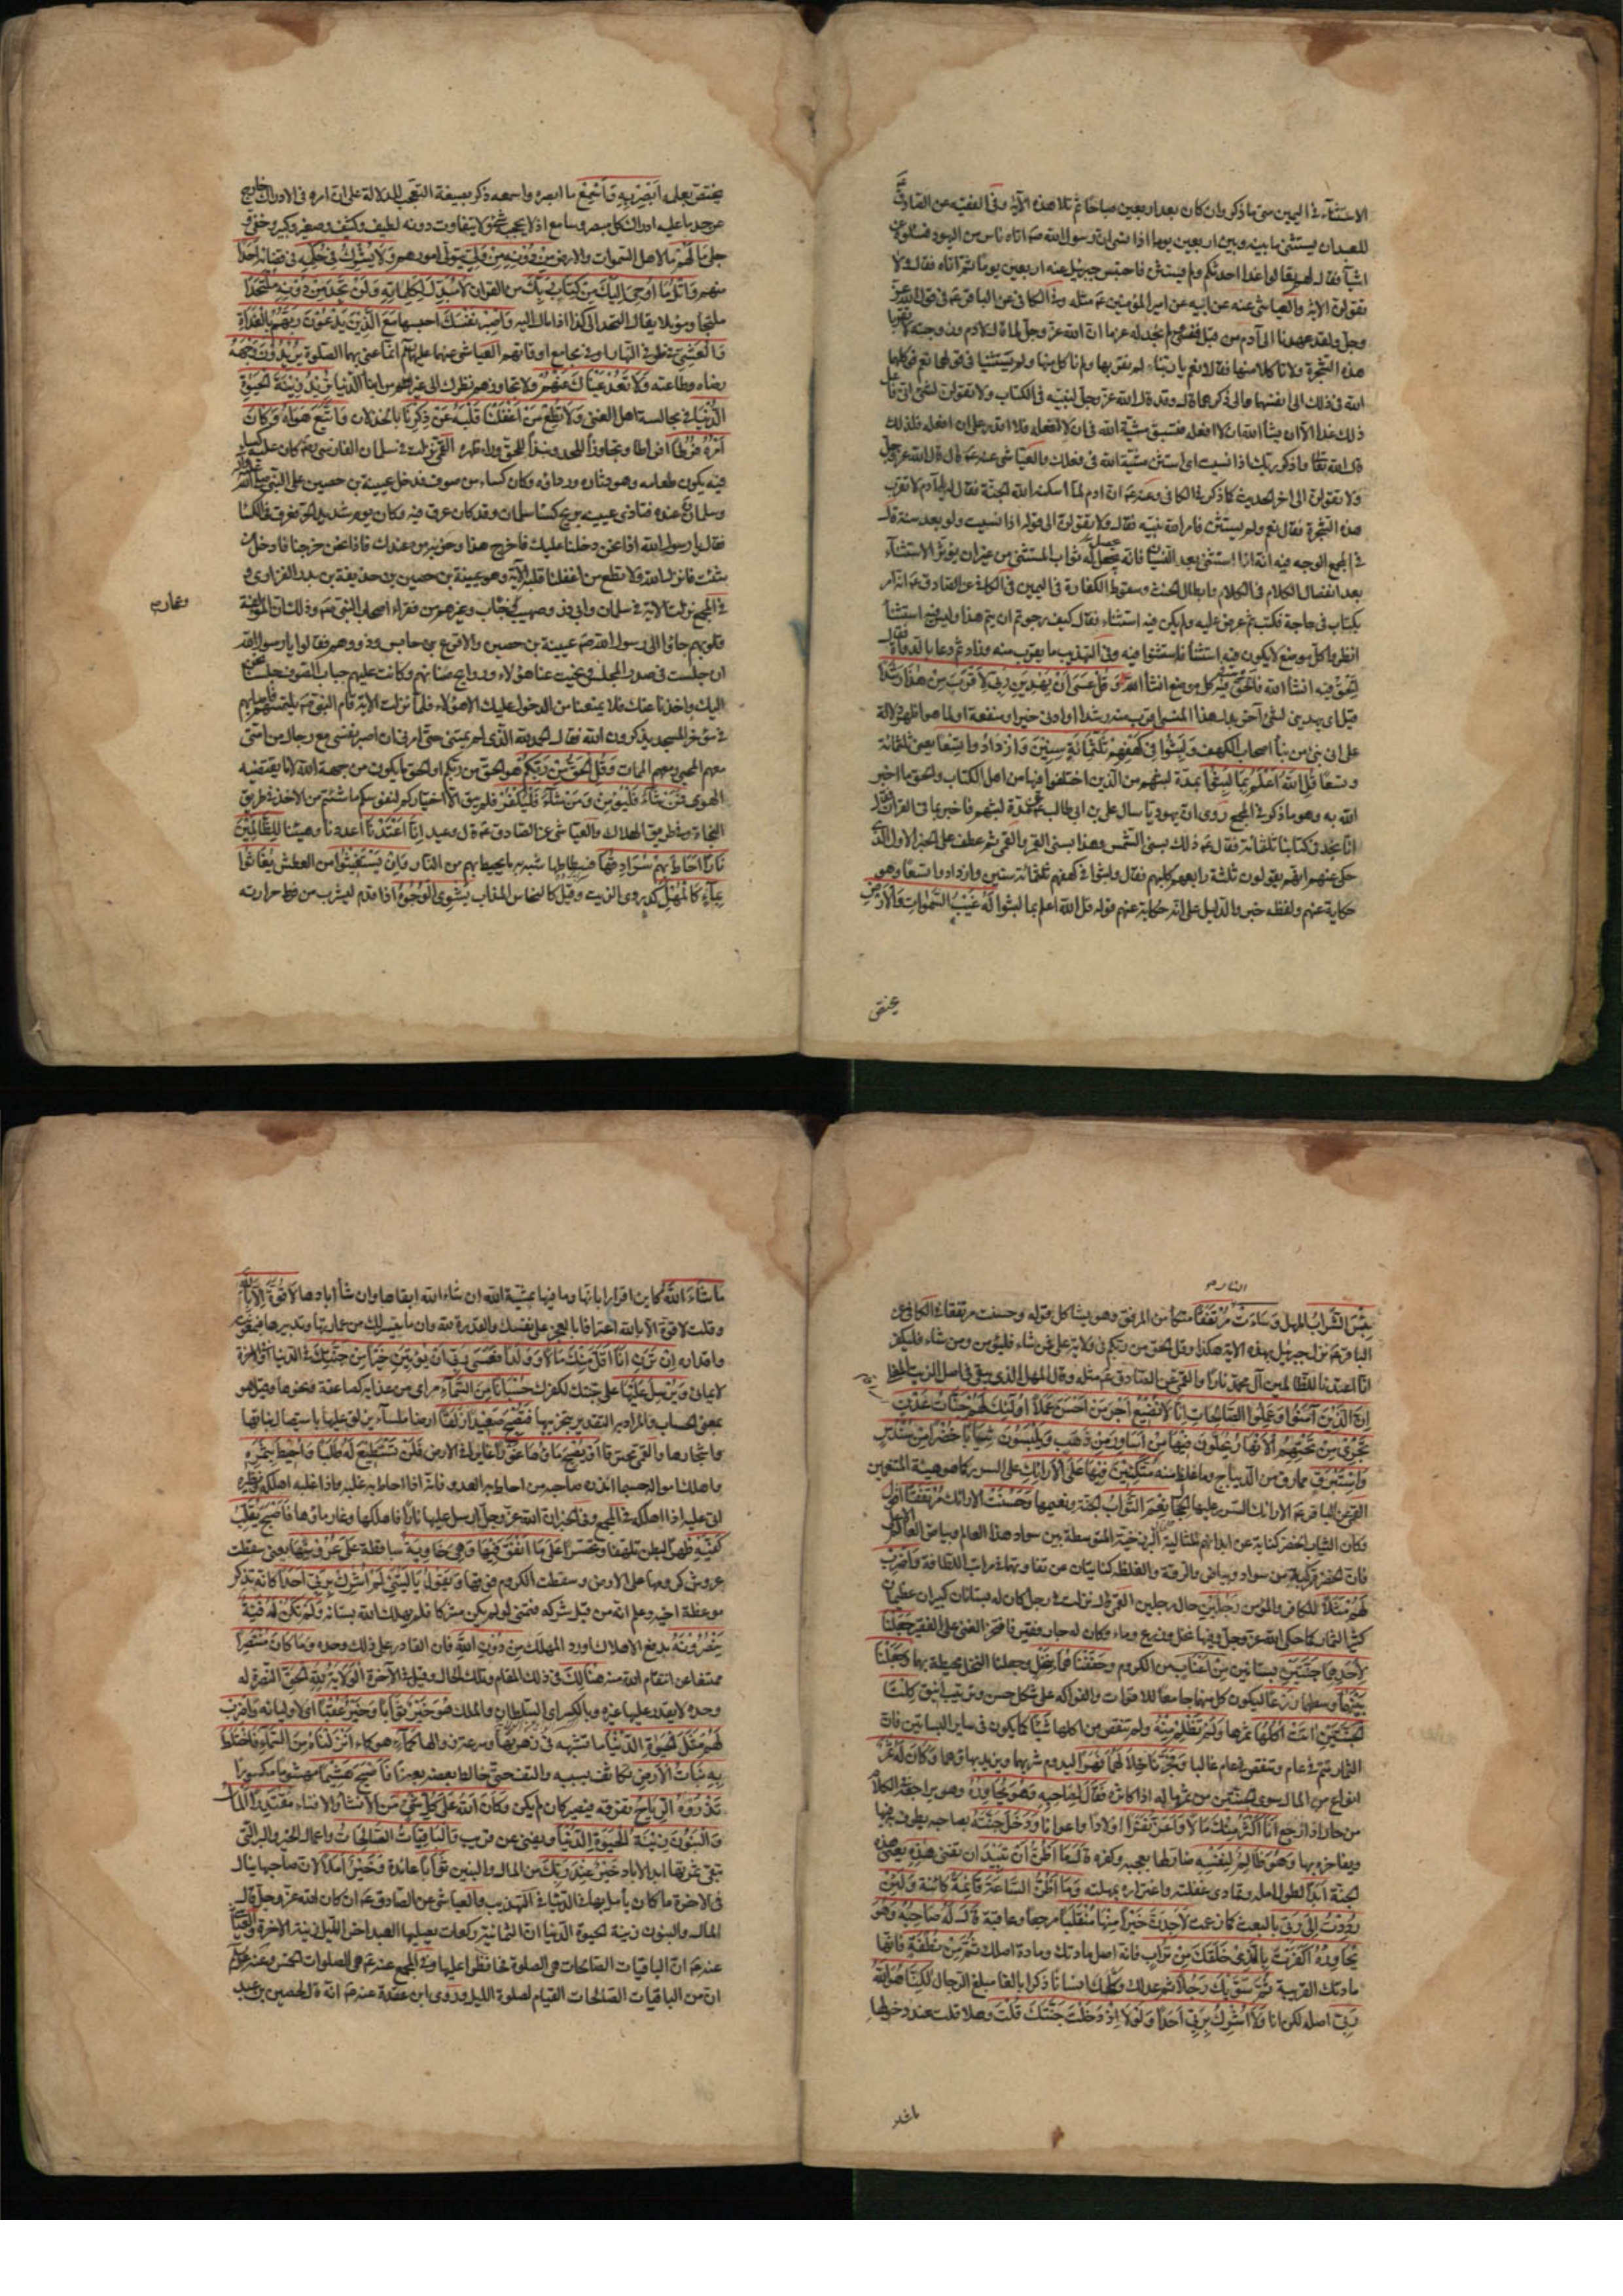 الاستثناء في اليمين متى ما ذكر وان كان بعد اربعين صباحا ثم تلا هذه الآية وفي الفقيه عن الصادق
للعبد ان يستثني ما بينه وبين اربعين يوما اذا نسي ان رسول الله ص اتاه ناس من اليهود فسئلوه عن
اشياء فقال لهم تعالوا غدا احدثكم ولم يستثن فاحتبس جبرئيل عنه اربعين يوما ثم اتاه فقال ولا
تقولن الآية والعياشي عنه عن ابيه عن امير المؤمنين ع مثله وفي الكافي عن الباقر ع في قول الله عز
وجل ولقد عهدنا الى آدم من قبل فنسي ولم نجد له عزما ان الله عز وجل لما قال لآدم وزوجته لا تقربا
هذه الشجرة ولا تاكلا منها فقالا نعم يا ربنا لم نقربها ولم ناكل منها ولم يستثنيا في قولهما نعم فوكلهما
الله في ذلك الى انفسهما والى ذكرهما قال وقد قال الله عز وجل لنبيه في الكتاب ولا تقولن لشئ اني فاعل
ذلك غدا الا ان يشاء الله ان لا افعله فتسبق مشية الله في ان لا افعله فلا اقدر على ان افعله فلذلك
قال الله تعالى واذكر ربك اذا نسيت اي استثن مشية الله في فعلك والعياشي عنه ع قال قال الله عز وجل
ولا تقولن الى اخر الحديث كما ذكر في الكافي وعنه ع ان ادم لما اسكنه الله الجنة فقال له يا آدم لا تقرب
هذه الشجرة فقال نعم ولم يستثن فامر الله نبيه فقال ولا تقولن الى قوله اذا نسيت ولو بعد سنة قال
في المجمع الوجه فيه انه اذا استثنى بعد النسيان فانه يحصل له ثواب المستثني من غير ان يؤثر الاستثناء
بعد انفصال الكلام في الكلام وابطال الحنث وسقوط الكفارة في اليمين في الكافي عن الصادق ع انه امر
بكتاب في حاجة فكتب ثم عرض عليه ولم يكن فيه استثناء فقال كيف رجوتم ان يتم هذا وليس فيه استثناء
انظروا كل موضع لا يكون فيه استثناء فاستثنوا فيه وفي التهذيب ما يقرب منه وزاد ثم دعا بالدواة فقال
الحق فيه انشاء الله فالحق فيه في كل موضع انشاء الله وَقُلْ عَسَى أَنْ يَهْدِيَنِ رَبِّي لِأَقْرَبَ مِنْ هَذَا رَشَدًا
على اني نبي من نبأ اصحاب الكهف وَلَبِثُوا فِي كَهْفِهِمْ ثَلَثَمِائَةٍ سِنِينَ وَازْدَادُوا تِسْعًا يعني ثلثمائة
وتسعا قُلِ اللهُ أَعْلَمُ بِمَا لَبِثُوا بمدة لبثهم من الذين اختلفوا فيها من اهل الكتاب والحق ما اخبر
الله به وهو ما ذكر في المجمع روى ان يهوديا سال علي بن ابي طالب ع عن مدة لبثهم فاخبر بما في القرآن فقال
انا نجد في كتابنا ثلثمائة فقال ع ذلك بسني الشمس وهذا بسني القمر والقمي ثم عطف على الخبر الاول الذي
حكى عنهم انهم يقولون ثلثة رابعهم كلبهم فقال ولبثوا في كهفهم ثلثمائة سنين وازدادوا تسعا وهو
حكاية عنهم ولفظه خبر والدليل على انه حكاية عنهم قوله قل الله اعلم بما لبثوا لَهُ غَيْبُ السَّمَوَاتِ وَالْأَرْضِ
يختص بعلمه أَبْصِرْ بِهِ وَأَسْمِعْ ما ابصره واسمعه ذكر بصيغة التعجب للدلالة على ان امره في الادراك خارج
عن حد ما عليه ادراك كل مبصر وسامع اذ لا يحجبه شئ ولا يتفاوت دونه لطيف وكثيف وصغير وكبير وخفي و
جلي مَا لَهُمْ ما لاهل السموات والارض مِنْ دُونِهِ مِنْ وَلِيٍّ يتولى امورهم وَلَا يُشْرِكُ فِي حُكْمِهِ في قضائه أَحَدًا
منهم وَاتْلُ مَا أُوحِيَ إِلَيْكَ مِنْ كِتَابِ رَبِّكَ من القرآن لَا مُبَدِّلَ لِكَلِمَاتِهِ وَلَنْ تَجِدَ مِنْ دُونِهِ مُلْتَحَدًا
ملتجأ وموئلا يقال التحد الى كذا اذا مال اليه وَاصْبِرْ نَفْسَكَ احبسها مَعَ الَّذِينَ يَدْعُونَ رَبَّهُمْ بِالْغَدَاةِ
وَالْعَشِيِّ في طرفي النهار او في مجامع اوقاتهم العياشي عنهما عليهما السلام انما عنى بهما الصلوة يُرِيدُونَ وَجْهَهُ
رضاه وطاعته وَلَا تَعْدُ عَيْنَاكَ عَنْهُمْ ولا تجاوزهم نظرك الى غيرهم من ابناء الدنيا تُرِيدُ زِينَةَ الْحَيَوةِ
الدُّنْيَا في مجالسة اهل الغنى وَلَا تُطِعْ مَنْ أَغْفَلْنَا قَلْبَهُ عَنْ ذِكْرِنَا بالخذلان وَاتَّبَعَ هَوَاهُ وَكَانَ
أَمْرُهُ فُرُطًا افراطا وتجاوزا للحد ونبذا للحق وراء ظهره القمي نزلت في سلمان الفارسي رض كان عليه كساء
فيه يكون طعامه وهو دثاره ورداؤه وكان كساء من صوف فدخل عيينة بن حصين على النبي صلى الله عليه وآله
وسلمان رض عنده فتاذى عيينة بريح كساء سلمان وقد كان عرق فيه وكان يوم شديد الحر فعرق في الكساء
فقال يا رسول الله اذا نحن دخلنا عليك فاخرج هذا وحزبه من عندك فاذا نحن خرجنا فادخل من
شئت فانزل الله ولا تطع من اغفلنا قلبه الآية وهو عيينة بن حصين بن حذيفة بن بدر الفزاري و
في المجمع نزلت الآية في سلمان وابي ذر وصهيب وخباب وغيرهم من فقراء اصحاب النبي ص وذلك ان المؤلفة
وعمار
قلوبهم جاؤا الى رسول الله ص عيينة بن حصين والاقرع بن حابس وذووهم فقالوا يا رسول الله
ان جلست في صدر المجلس ونحيت عنا هؤلاء وروايح صنانهم وكانت عليهم جباب الصوف جلسنا نحن
اليك واخذنا عنك فلا يمنعنا من الدخول عليك الا هؤلاء فلما نزلت الآية قام النبي ص يلتمسهم فاصابهم
في مؤخر المسجد يذكرون الله فقال الحمد لله الذي لم يمتني حتى امرني ان اصبر نفسي مع رجال من امتي
معهم المحيى ومعهم الممات وَقُلِ الْحَقُّ مِنْ رَبِّكُمْ هو الحق من ربكم او الحق ما يكون من جهة الله لا ما يقتضيه
الهوى فَمَنْ شَاءَ فَلْيُؤْمِنْ وَمَنْ شَاءَ فَلْيَكْفُرْ فلم يبق الا اختياركم لنفوسكم ما شئتم من الاخذ في طريق
النجاة وفي طريق الهلاك والعياشي عن الصادق ع قال وعيد إِنَّا أَعْتَدْنَا اعددنا وهيئنا لِلظَّالِمِينَ
نَارًا أَحَاطَ بِهِمْ سُرَادِقُهَا فسطاطها شبه به ما يحيط بهم من النار وَإِنْ يَسْتَغِيثُوا من العطش يُغَاثُوا
بِمَاءٍ كَالْمُهْلِ كدردي الزيت وقيل كالنحاس المذاب يَشْوِي الْوُجُوهَ اذا قدم ليشرب من فرط حرارته
بِئْسَ الشَّرَابُ المهل وَسَاءَتْ مُرْتَفَقًا متكأ من المرفق وهو يشاكل قوله وحسنت مرتفقا في الكافي عن
الباقر ع نزل جبرئيل بهذه الآية هكذا وقل الحق من ربكم في ولاية علي فمن شاء فليؤمن ومن شاء فليكفر
انا اعتدنا للظالمين آل محمد نارا والقمي عن الصادق ع مثله وقال المهل الذي يبقى في اصل الزيت المغلى
إِنَّ الَّذِينَ آمَنُوا وَعَمِلُوا الصَّالِحَاتِ إِنَّا لَا نُضِيعُ أَجْرَ مَنْ أَحْسَنَ عَمَلًا أُولَئِكَ لَهُمْ جَنَّاتُ عَدْنٍ
تَجْرِي مِنْ تَحْتِهِمُ الْأَنْهَارُ يُحَلَّوْنَ فِيهَا مِنْ أَسَاوِرَ مِنْ ذَهَبٍ وَيَلْبَسُونَ ثِيَابًا خُضْرًا مِنْ سُنْدُسٍ
وَإِسْتَبْرَقٍ مما رق من الديباج وما غلظ منه مُتَّكِئِينَ فِيهَا عَلَى الْأَرَائِكِ على السرر كما هو هيئة المتنعمين
القمي عن الباقر ع الارائك السرر عليها الحجال نِعْمَ الثَّوَابُ الجنة ونعيمها وَحَسُنَتْ الارائك مُرْتَفَقًا اقول
وكان الثياب الخضر كناية عن ابدانهم المثالية البرزخية المتوسطة بين سواد هذا العالم وبياض العالم الاعلى
فان الخضرة مركبة من سواد وبياض والرقة والغلظ كنايتان عن تفاوتهما في مراتب اللطافة وَاضْرِبْ
لَهُمْ مَثَلًا للكافر والمؤمن رَجُلَيْنِ حال رجلين القمي قال نزلت في رجل كان له بستانان كبيران عظيمان
كثيرا الثمار كما حكى الله عز وجل وفيها نخل وزرع وماء وكان له جار فقير فافتخر الغني على الفقير جَعَلْنَا
لِأَحَدِهِمَا جَنَّتَيْنِ بستانين مِنْ أَعْنَابٍ من الكروم وَحَفَفْنَاهُمَا بِنَخْلٍ وجعلنا النخل محيطة بهما وَجَعَلْنَا
بَيْنَهُمَا وسطهما زَرْعًا ليكون كل منهما جامعا للاقوات والفواكه على شكل حسن وترتيب انيق كِلْتَا
الْجَنَّتَيْنِ آتَتْ أُكُلَهَا ثمرها وَلَمْ تَظْلِمْ مِنْهُ ولم تنقص من اكلها شَيْئًا كما يكون في ساير البساتين فان
الثمار تتم في عام وتنقص في عام غالبا وَفَجَّرْنَا خِلَالَهُمَا نَهَرًا ليدوم شربهما ويزيد بهائهما وَكَانَ لَهُ ثَمَرٌ
انواع من المال سوى الجنتين من ثمر ماله اذا كثره فَقَالَ لِصَاحِبِهِ وَهُوَ يُحَاوِرُهُ وهو يراجعه الكلام
من حار اذا رجع أَنَا أَكْثَرُ مِنْكَ مَالًا وَأَعَزُّ نَفَرًا اولادا واعوانا وَدَخَلَ جَنَّتَهُ بصاحبه يطوف به فيها
ويفاخره بها وَهُوَ ظَالِمٌ لِنَفْسِهِ ضار لها بعجبه وكفره قَالَ مَا أَظُنُّ أَنْ تَبِيدَ ان تفنى هَذِهِ يعني هذه
الجنة أَبَدًا لطول امله وتمادي غفلته واغتراره بمهلته وَمَا أَظُنُّ السَّاعَةَ قَائِمَةً كائنة وَلَئِنْ
رُدِدْتُ إِلَى رَبِّي بالبعث كما زعمت لَأَجِدَنَّ خَيْرًا مِنْهَا مُنْقَلَبًا مرجعا وعاقبة قَالَ لَهُ صَاحِبُهُ وَهُوَ
يُحَاوِرُهُ أَكَفَرْتَ بِالَّذِي خَلَقَكَ مِنْ تُرَابٍ فانه اصل مادتك ومادة اصلك ثُمَّ مِنْ نُطْفَةٍ فانها
مادتك القريبة ثُمَّ سَوَّيكَ رَجُلًا ثم عدلك وكملك انسانا ذكرا بالغا مبلغ الرجال لَكِنَّا هُوَ اللهُ
رَبِّي اصله لكن انا وَلَا أُشْرِكُ بِرَبِّي أَحَدًا وَلَوْلَا إِذْ دَخَلْتَ جَنَّتَكَ قُلْتَ وهلا قلت عند دخولها
مَا شَاءَ اللهُ كاين اقرارا بانها وما فيها بمشية الله ان شاء الله ابقاها وان شاء ابادها لَا قُوَّةَ إِلَّا بِاللهِ
وقلت لا قوة الا بالله اعترافا بالعجز على نفسك والقدرة لله وان ما تيسر لك من عمارتها وتدبيرها فبمعونته
واقداره إِنْ تَرَنِ أَنَا أَقَلَّ مِنْكَ مَالًا وَوَلَدًا فَعَسَى رَبِّي أَنْ يُؤْتِيَنِ خَيْرًا مِنْ جَنَّتِكَ في الدنيا او الاخرة
لايماني وَيُرْسِلَ عَلَيْهَا على جنتك لكفرك حُسْبَانًا مِنَ السَّمَاءِ مرامي من عذابه كصاعقة ونحوها وقيل هو
بمعنى الحساب والمراد به التقدير بتخريبها فَتُصْبِحَ صَعِيدًا زَلَقًا ارضا ملساء يزلق عليها باستيصال نباتها
واشجارها والقمي محترقا أَوْ يُصْبِحَ مَاؤُهَا غَوْرًا غايرا في الارض فَلَنْ تَسْتَطِيعَ لَهُ طَلَبًا وَأُحِيطَ بِثَمَرِهِ
واهلك امواله حسبما انذره صاحبه من احاط به العدو فانه اذا احاط به غلبه واذا غلبه اهلكه ونظيره
اتى عليه اذا اهلكه في المجمع وفي الخبر ان الله عز وجل ارسل عليها نارا فاهلكها وغار ماؤها فَأَصْبَحَ يُقَلِّبُ
كَفَّيْهِ ظهرا لبطن تلهفا وتحسرا عَلَى مَا أَنْفَقَ فِيهَا وَهِيَ خَاوِيَةٌ ساقطة عَلَى عُرُوشِهَا يعني سقطت
عروش كرومها على الارض وسقطت الكروم فوقها وَيَقُولُ يَا لَيْتَنِي لَمْ أُشْرِكْ بِرَبِّي أَحَدًا كانه تذكر
موعظة اخيه وعلم انه من قبل شركه فتمنى لو لم يكن مشركا فلم يهلك الله بستانه وَلَمْ تَكُنْ لَهُ فِئَةٌ
يَنْصُرُونَهُ بدفع الاهلاك او رد المهلك مِنْ دُونِ اللهِ فان القادر على ذلك وحده وَمَا كَانَ مُنْتَصِرًا
ممتنعا عن انتقام الله منه هُنَالِكَ في ذلك المقام وتلك الحال وقيل في الآخرة الْوَلَايَةُ لِلَّهِ الْحَقِّ النصرة له
وحده لا يقدر عليها غيره وبالكسر اي السلطان والملك هُوَ خَيْرٌ ثَوَابًا وَخَيْرٌ عُقْبًا اي لاوليائه وَاضْرِبْ
لَهُمْ مَثَلَ الْحَيَوةِ الدُّنْيَا ما تشبهه في زهرتها وسرعة زوالها كَمَاءٍ هو كماء أَنْزَلْنَاهُ مِنَ السَّمَاءِ فَاخْتَلَطَ
بِهِ نَبَاتُ الْأَرْضِ تكاثف بسببه والتف حتى خالط بعضه بعضا فَأَصْبَحَ هَشِيمًا مهشوما مكسورا
تَذْرُوهُ الرِّيَاحُ تفرقه فيصير كان لم يكن وَكَانَ اللهُ عَلَى كُلِّ شَيْءٍ من الانشاء والافناء مُقْتَدِرًا الْمَالُ
وَالْبَنُونَ زِينَةُ الْحَيَوةِ الدُّنْيَا ويفنى عن قريب وَالْبَاقِيَاتُ الصَّالِحَاتُ واعمال الخير والبر التي
تبقى ثمرتها ابد الاباد خَيْرٌ عِنْدَ رَبِّكَ من المال والبنين ثَوَابًا عائدة وَخَيْرٌ أَمَلًا لان صاحبها ينال
في الاخرة ما كان يأمل بها في الدنيا في التهذيب والعياشي عن الصادق ع ان كان الله عز وجل قال
المال والبنون زينة الحيوة الدنيا ان الثمانية ركعات يصليها العبد اخر الليل زينة الاخرة والعياشي
عنه ع ان الباقيات الصالحات هي الصلوة فحافظوا عليها وفي المجمع عنه ع هي الصلوات الخمس وعنه ع
ان من الباقيات الصالحات القيام لصلوة الليل وروى ابن عقدة عنه ع انه قال لحصين بن عبد